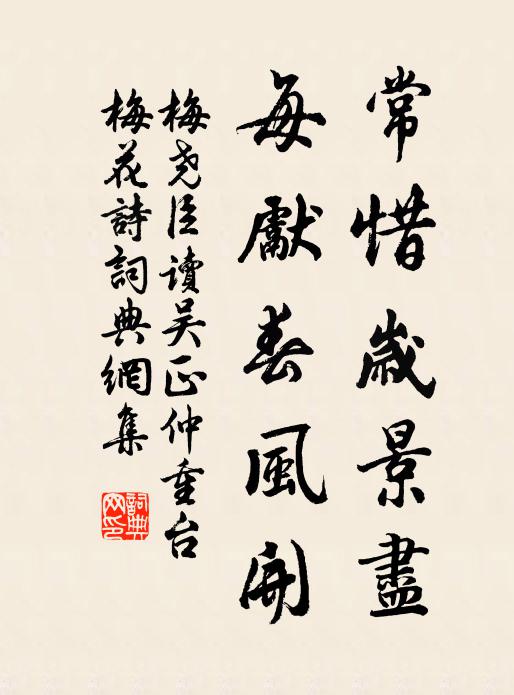 常惜歲景盡
每獻春風開
梅堯臣讀吳正仲重台
梅花詩詞典網集
詞典
网印